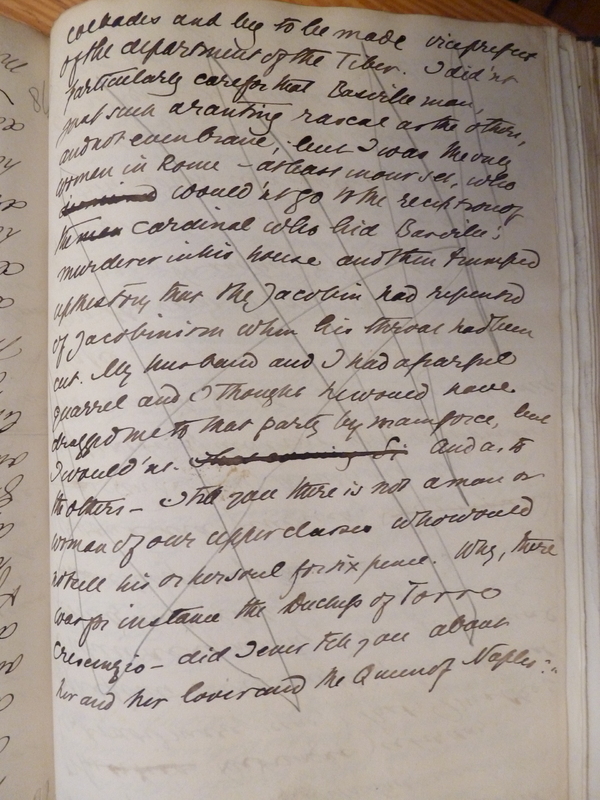 cockades and beg to be made viceprefect
of the department of the Tiber. I did'nt
particularly care for that Basville man,
just such a ranting rascal as the others,
and not even brave; but I was the only
woman in Rome – at least in our set, who
would'nt go to the reception of
the cardinal who hid Basville's
murderer in his house and then trumped
up the story that the Jacobin had repented
of Jacobinism when his throat had been
cut. My husband and I had a fearful
quarrel and I thought he would have
dragged me to that party by mainforce, but
I would'nt. That evening Si and as to
the others – I tell you there is not a man or
woman of our upper classes who would
not sell his or her soul for six pence. Why, there
was for instance the Duchess of Torre
Crescenzio – did I ever tell you about
her and her lover and the Queen of Naples:..